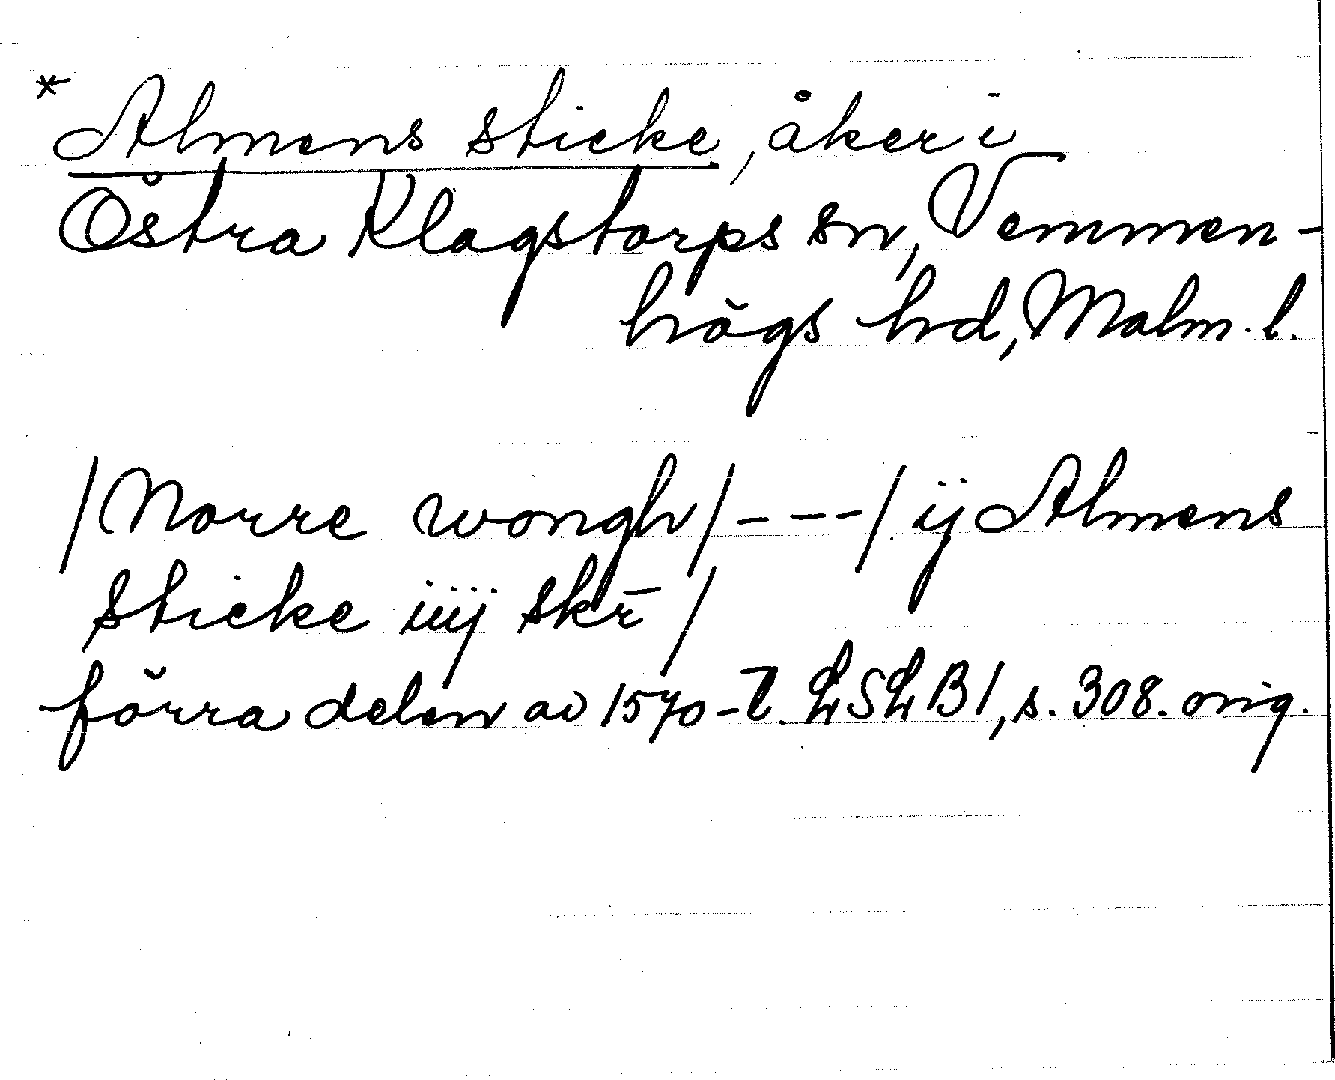 * Almens sticke, åker i
Östra Klagstorps sn, Vemmen-
högs hd, Malm. l.
/Norre wongh/---/ ij Almens
sticke iiij skr̄/
förra delen av 1570-t. LSLB1, s. 308. orig.